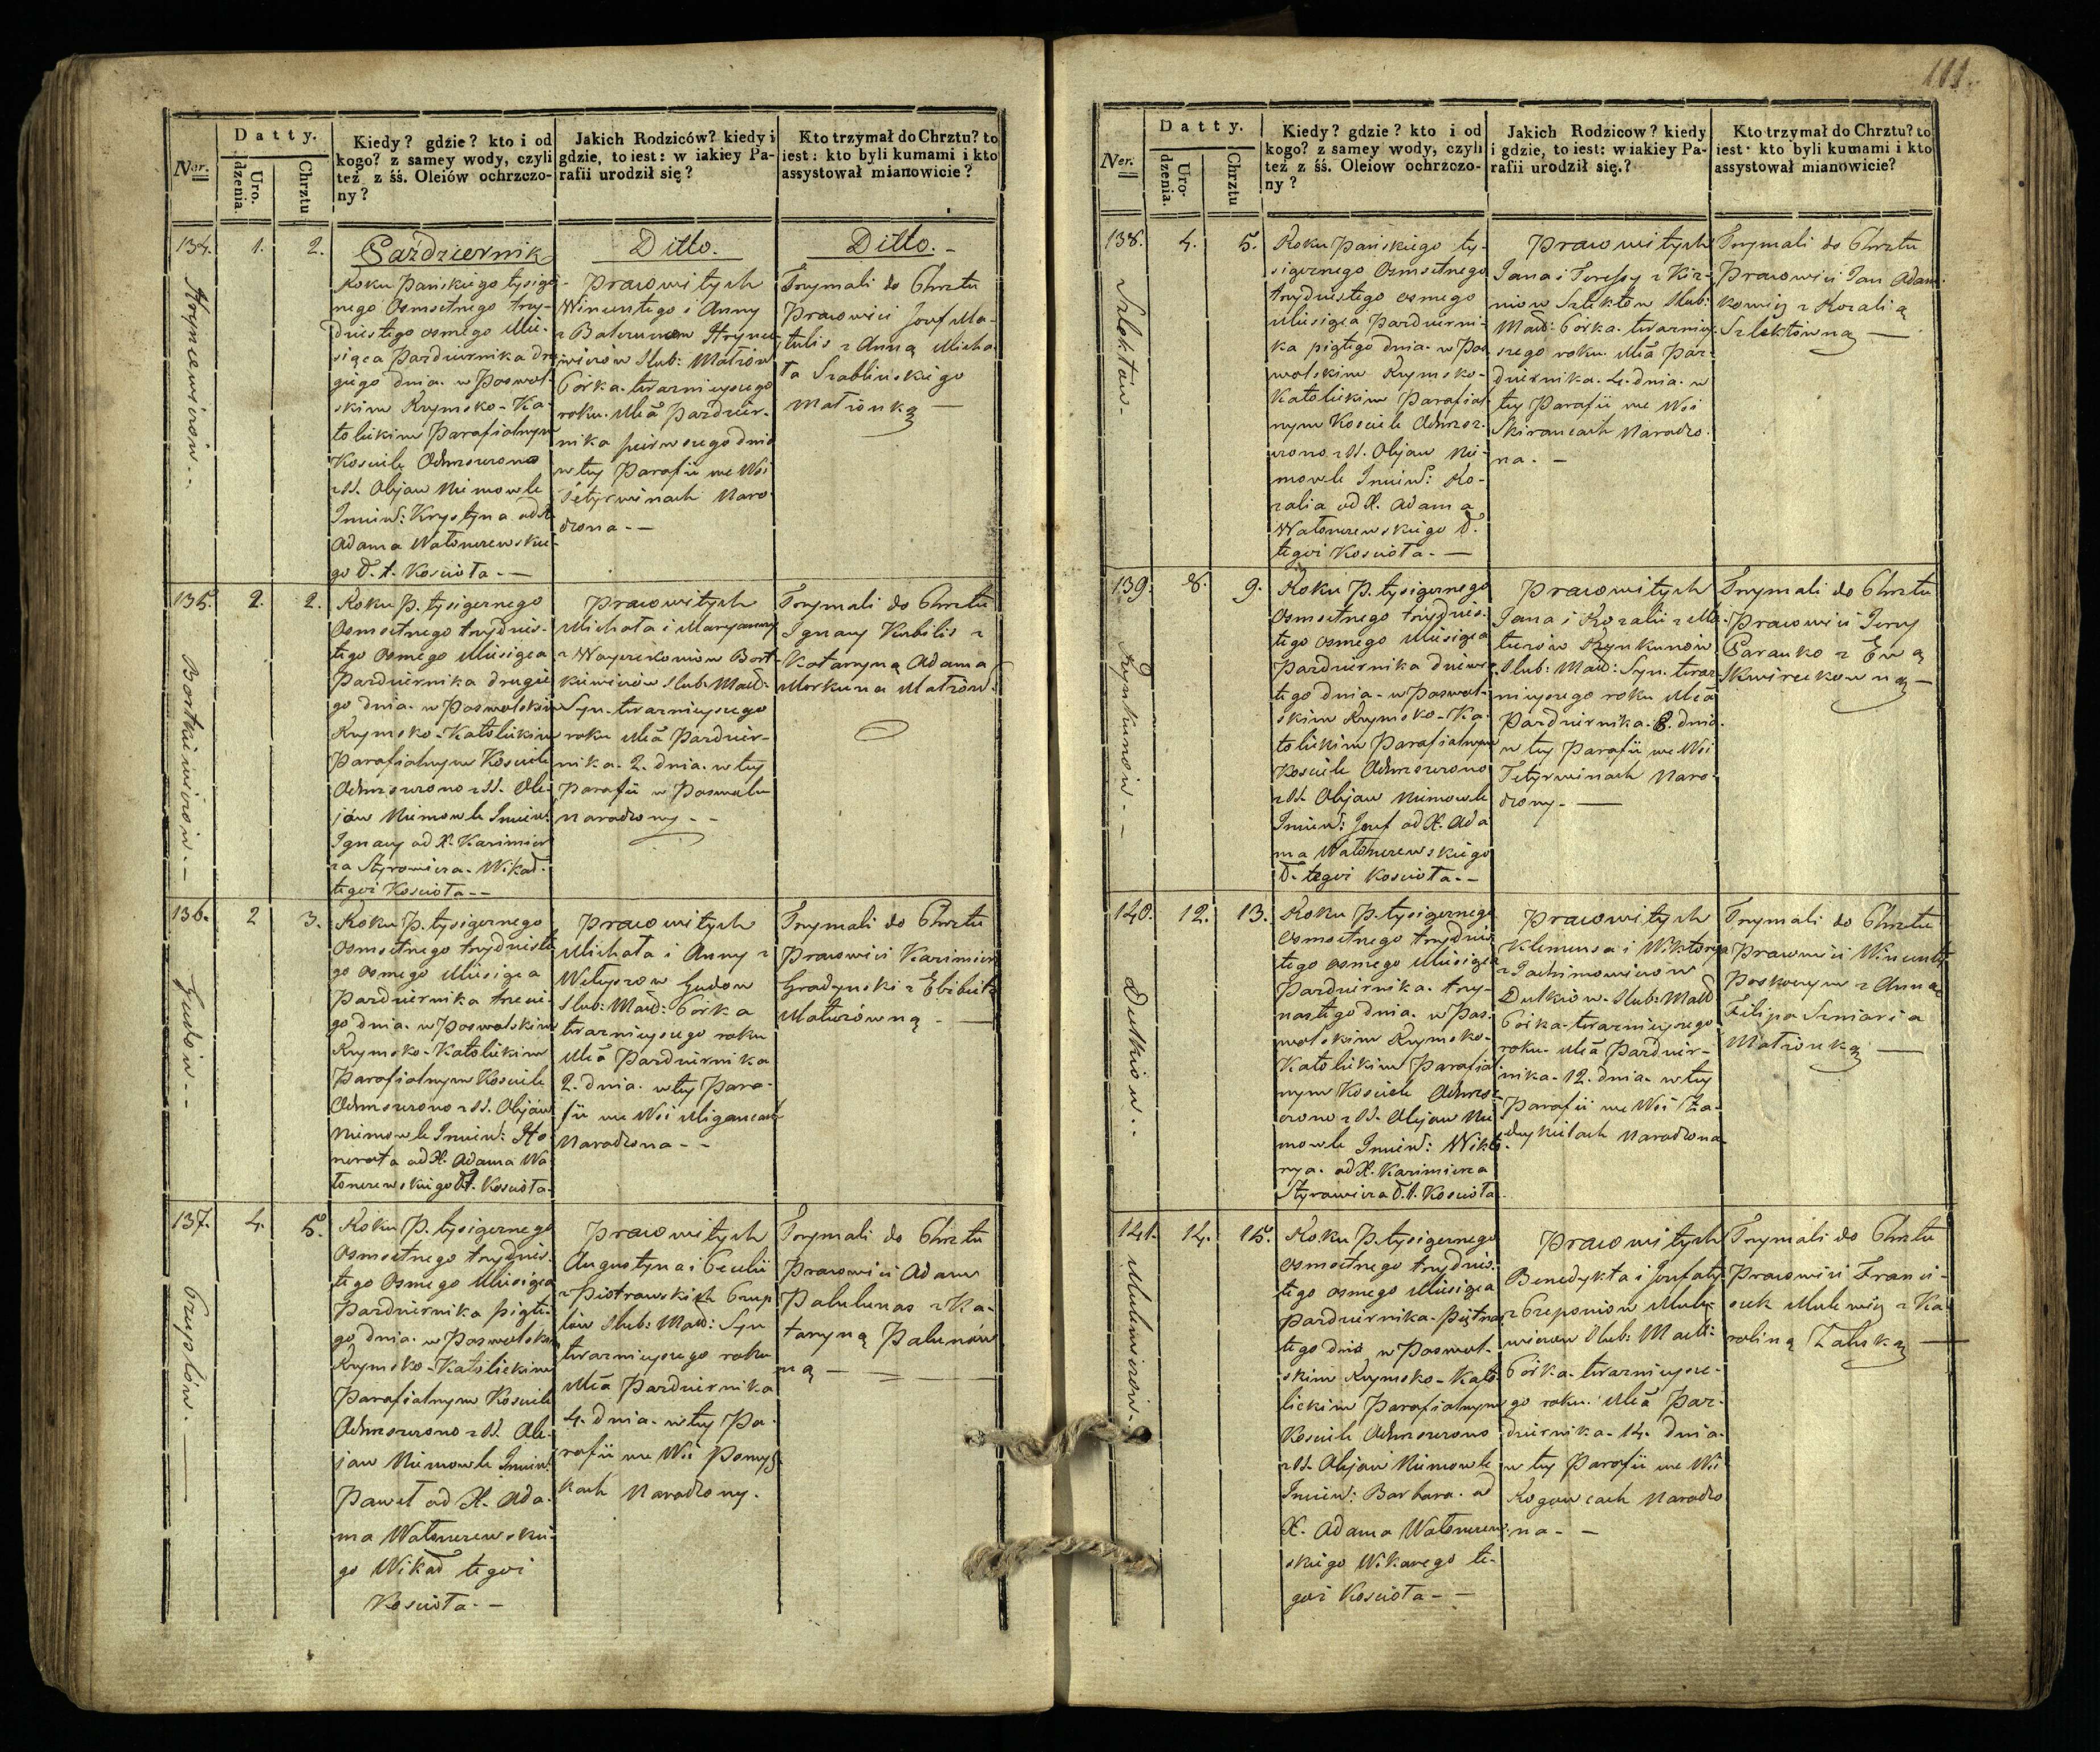 Ner.
Datty.
Urodzenia.
Chrztu
Kiedy? gdzie? kto i od
kogo? z samey wody, czyli
też z śś. Oleiów ochrzczo-
ny?
Jakich Rodziców? kiedy i
gdzie, to iest: w iakiey Pa-
rafii urodził się?
Kto trzymał do Chrztu? to
iest: kto byli kumami i kto
assystował mianowicie?
134.
Hryncewiczów.
1.
2.
Pazdziernik
Roku Pańskiego tysiącz-
nego Osmsetnego trzy-
dziestego osmego Mie-
siąca Pazdziernika dru
giego dnia. w Poswol-
skim Rzymsko-Ka-
tolickim Parafialnym
Kosciele Ochrzczono
z SS. Olejow Niemowle
Imien: Krystyna od X.
Adama Walonczewskie-
go W. t. Kościoła. —
Ditto.
Prawowitych
Wincentego i Anny
z Balcunow Hrynce
wiczów Slub: Małżów
Córka. teraznieyszego
roku. Mca Pazdzier-
nika pierwszego dnia
w tey Parafii we Wsi
Tetyrwinach Naro-
dzona. —
Ditto. —
Trzymali do Chrztu
Prawowici Jozef Ma-
tulis z Anną Micha-
ła Szablinskiego
Małżonką —
135.
Bortkiewiczow. —
2.
2.
Roku P. tysiącznego
Osmsetnego trzydzies-
tego Osmego Miesiąca
Pazdziernika drugie
go dnia. w Poswolskim
Rzymsko-Katolickim
Parafialnym Kosciele
Ochrzczono z SS. Ole-
jów Niemowle Imien:
Ignacy od X. Kazimier
za Styrowicza. Wikad.
tegoż Kościoła. —
Prawowitych
Michała i Maryanny
z Woyczekoniow Bort-
kiewiczów Slub: Małż.
Syn. teraznieyszego
roku Mca Pazdzier-
nika. 2. dnia. w tey
Parafii w Poswolu
Narodzony. —
Trzymali do Chrztu
Ignacy Kubilis z
Katarzyną Adama
Morkuna Małżon.
136.
Gudow. —
2
3.
Roku P. tysiącznego
Osmsetnego trzydzieste
go Osmego Miesiąca
Pazdziernika trzecie
go dnia. w Poswolskim
Rzymsko-Katolickim
Parafialnym Kosciele
Ochrzczono z SS. Olejów
Niemowle Imien: Ho
norata od X. Adama Wa
lonczewskiego W. t. Kościoła.
Prawowitych
Michała i Anny z
Wetyszow Gudow
Slub: Małż: Córka
teraznieyszego roku
Mca Pazdziernika
2. dnia. w tey Para-
fii we Wsi Migancach
Narodzona —
Trzymali do Chrztu
Prawowici Kazimierz
Gradzynski z Elzbietą
Matuzówną. —
137.
Czuplów. —
4.
5.
Roku P. tysiącznego
Osmsetnego trzydzies-
tego Osmego Miesiąca
Pazdziernika piąte-
go dnia. w Poswolskim
Rzymsko-Katolickim
Parafialnym Kosciele
Ochrzczono z SS. Ole-
jow Niemowle Imien:
Paweł od X. Ada-
ma Walonczewskie-
go Wikad tegoż
Kościoła. —
Prawowitych
Augustyna i Cecylii
z Piotrowskich Czup
lów Slub: Małż: Syn
teraznieyszego roku
Mca Pazdziernika
4. dnia. w tey Pa-
rafii we Wsi
Narodzony.
Trzymali do Chrztu
Prawowici Adam
Palulunas z Ka-
tarzyną Palunów
ną —
111.
Ner.
Datty.
Urodzenia.
Chrztu
Kiedy? gdzie? kto i od
kogo? z samey wody, czyli
też z śś. Oleiow ochrzczo-
ny?
Jakich Rodzicow? kiedy
i gdzie, to iest: w iakiey Pa-
rafii urodził się.?
Kto trzymał do Chrztu? to
iest: kto byli kumami i kto
assystował mianowicie?
138.
Szlektów.
4.
5.
Roku Pańskiego ty-
siącznego Osmsetnego
trzydziestego osmego
Miesiąca Pazdzierni-
ka piątego dnia. w Pos-
wolskim Rzymsko-
Katolickim Parafial-
nym Kosciele Ochrzcz-
czono z SS. Olejow Nie
mowle Imien: Ro-
zalia od X. Adama
Walonczewskiego W.
tegoż Kościoła. —
Prawowitych
Jana i Teressy z Kir-
niow Szlektow Slub:
Małż: Córka. terazniey-
szego roku. Mca Paz-
dziernika. 4. dnia. w
tey Parafii we Wsi
Skirancach Narodzo-
na. —
Trzymali do Chrztu
Prawowici Jan Adam-
kowicz z Rozalią
Szlektowną —
139.
Rynkunow. —
8.
9.
Roku P. tysiącznego
Osmsetnego trzydzies-
tego Osmego Miesiąca
Pazdziernika dziewią
tego dnia. w Poswol-
skim Rzymsko-Ka-
tolickim Parafialnym
Kosciele Ochrzczono
z SS. Olejow Niemowle
Imien: Jozef od X. Ada
ma Walonczewskiego
W. tegoż Kościoła. —
Prawowitych
Jana i Rozalii z Ma-
tuzów Rynkunów
Slub: Małż: Syn. teraz
nieyszego roku Mca
Pazdziernika. 8. dnia.
w tey Parafii we Wsi
Tetyrwinach Naro-
dzony. —
Trzymali do Chrztu
Prawowici Jerzy
Paranko z Ewą
Skwireckowną —
140.
Dulkiow.
12.
13.
Roku P. tysiącznego
Osmsetnego trzydzies
tego osmego Miesiąca
Pazdziernika. trzy-
nastego dnia. w Pos-
wolskim Rzymsko-
Katolickim Parafial
nym Kosciele Ochrz-
czono z SS. Olejow Nie
mowle Imien: Wikto-
rya. od X. Kazimierza
Styrowicza W. t. Kościoła
Prawowitych
Klemensa i Wiktoryi
z Jachimowiczow
Dulkiow. Slub: Małż
Córka. teraznieyszego
roku. Mca Pazdzier-
nika. 12. dnia. w tey
Parafii we Wsi
Narodzona
Trzymali do Chrztu
Prawowici Wincenty
Poskoczym z Anną
Filipa Szniaria
Małżonką —
141.
Mulewiczow.
14.
15.
Roku P. tysiącznego
Osmsetnego trzydzies-
tego osmego Miesiąca
Pazdziernika. Piętnas
tego dnia w Poswol-
skim Rzymsko-Kato
lickim Parafialnym
Kosciele Ochrzczono
z SS. Olejow Niemowle
Imien: Barbara. od
X. Adama Walonczew-
skiego Wikarego te-
goż Kościoła —
Prawowitych
Benedykta i Jozefaty
z Czeponiow Mule-
wiczow Slub: Małż:
Córka. teraznieysze-
go roku. Mca Paz-
dziernika. 14. dnia.
w tey Parafii we Wsi
Rogowcach Narodzo
na. —
Trzymali do Chrztu
Prawowici Franci-
szek Mulewicz z Ka-
roliną Zaliską —